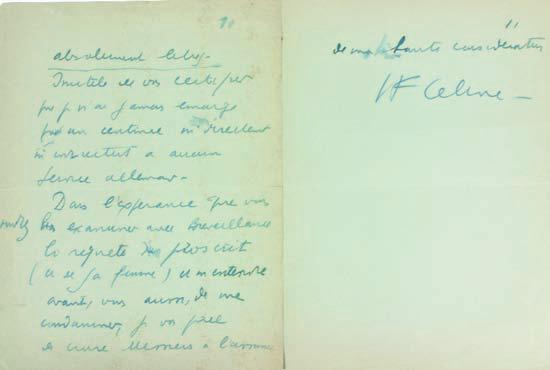 10
absolument libre.
Inutile de vous certifier
que je n'ai jamais émargé
pour un centime ni directement
ni indirectement a aucun
service allemand -
Dans l'espérance que vous
voudrez bien examiner avec bienveillance
la requête du proscrit
(et de sa femme) et m'entendre
avant, vous aussi, de me
condamner, je vous prie
de croire Messieurs à l'assurance
11
de ma haute considération
LF Celine -